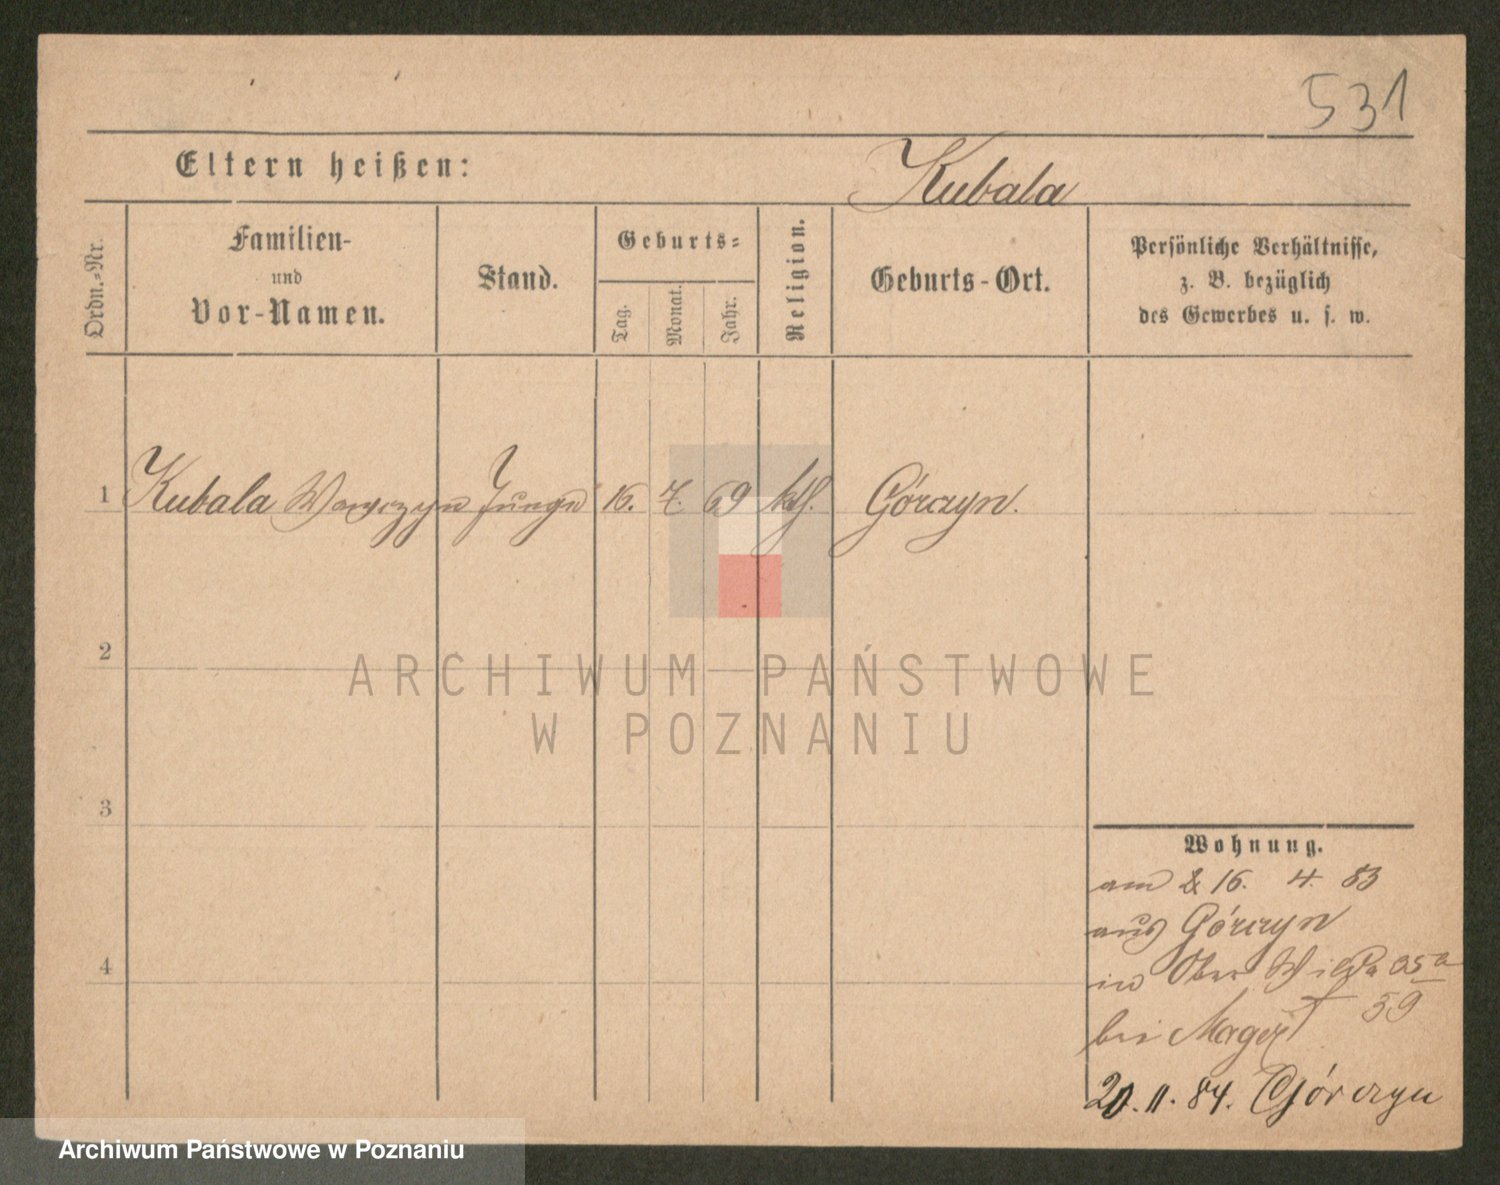 531
Eltern heißen:
Kubala
Ordn.-Nr.
Familien-
und
Vor-Namen.
Stand.
Geburts-
Tag.
Monat.
Jahr.
Religion.
Geburts-Ort.
Persönliche Verhältnisse,
z. B. bezüglich
des Gewerbes u. s. w.
1 Kubala Wawrzyn Junge 16. 7. 69 kth. Górczyn.
2
3
4
ARCHIWUM PAŃSTWOWE
W POZNANIU
Wohnung.
am 16. 4. 83
aus Górczyn
in Ober Wilda
59
bei
20. 11. 84. Górczyn
Archiwum Państwowe w Poznaniu